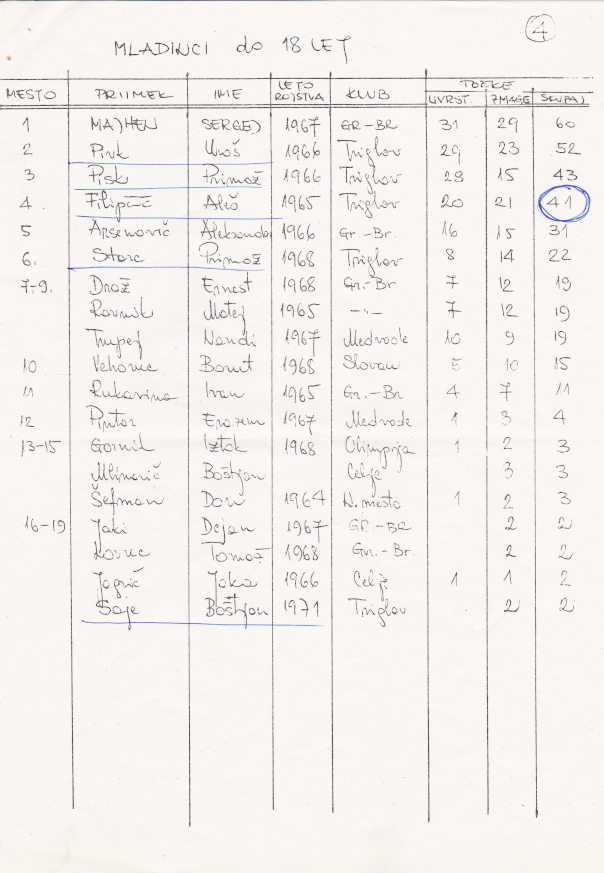 4
MLADINCI do 18 LET
MESTO PRIIMEK IME LETO ROJSTVA KLUB TOČKE UVRST. ZMAGE SKUPAJ
1 MAJHEN SERGEJ 1967 GR-BR 31 29 60
2 Pirk Uroš 1966 Triglav 29 23 52
3 Pisk Primož 1966 Triglav 28 15 43
4. Filipčič Aleš 1965 Triglav 20 21 41
5 Arsenovič Aleksander 1966 Gr.-Br. 16 15 31
6. Starc Primož 1968 Triglav 8 14 22
7-9. Drož Ernest 1968 Gr.-Br 7 12 19
Ravnik Matej 1965 -"- 7 12 19
Trupej Nandi 1967 Medvode 10 9 19
10 Vehovec Borut 1968 Slovan 5 10 15
11 Rukavina Ivan 1965 Gr.-Br 4 7 11
12 Pintar Erazem 1967 Medvode 1 3 4
13-15 Gornik Iztok 1968 Olimpija 1 2 3
Mlinarič Boštjan Celje 3 3
Šefman Dari 1964 N.mesto 1 2 3
16-19 Jaki Dejan 1967 GR.-BR 2 2
Kovec Tomaž 1968 Gr.-Br. 2 2
Jagrič Jaka 1966 Celje 1 1 2
Saje Boštjan 1971 Triglav 2 2